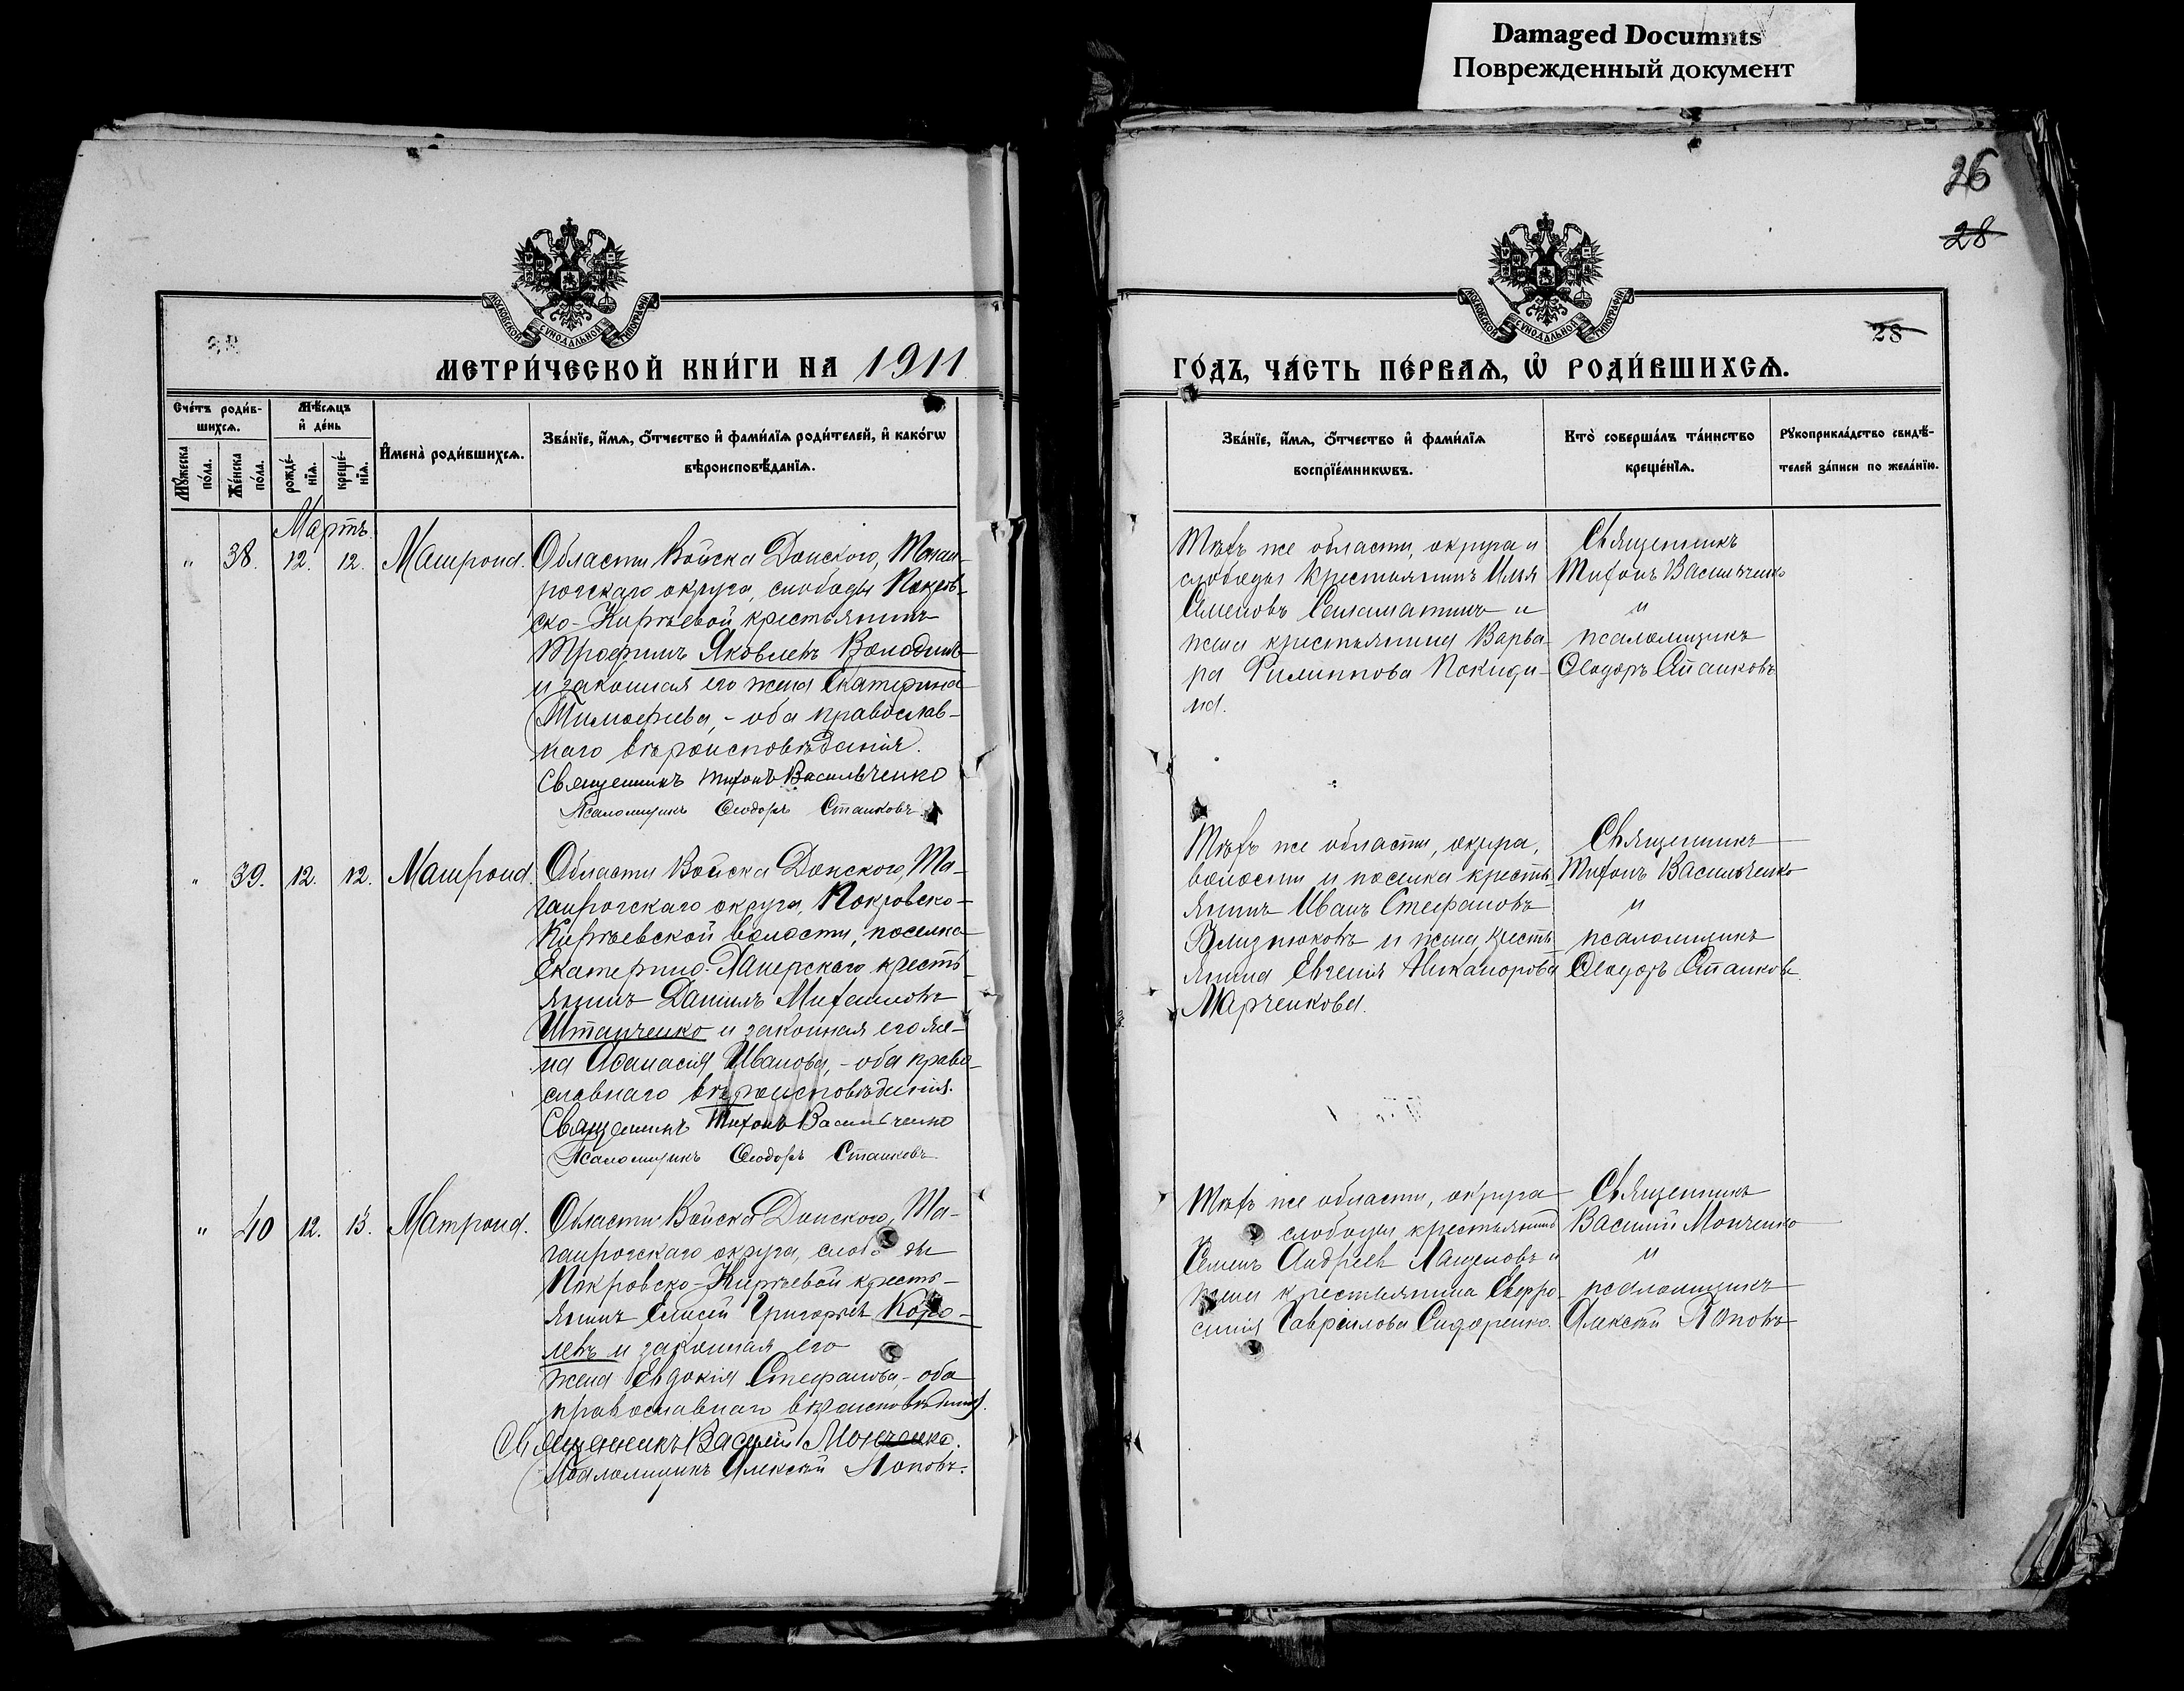 Damaged Documnts
Поврежденный документ
26
28
28
МОСКОВСКОЙ СѴНОДАЛЬНОЙ ТИПОГРАФІИ
МОСКОВСКОЙ СѴНОДАЛЬНОЙ ТИПОГРАФІИ
МЕТРИ́ЧЕСКОЙ КНИ́ГИ НА 1911
ГО́ДЪ, ЧА́СТЬ ПЕ́РВАѦ, Ѡ҆ РОДИ́ВШИХСѦ.
Сче́тъ роди́в-
шихсѧ.
Мꙋ́жеска по́ла.
Же́нска по́ла.
Мѣ́сѧцъ
и҆ де́нь
рожде́-
нїѧ.
креще́-
нїѧ.
И҆мена̀ роди́вшихсѧ.
Зва́нїе, и҆́мѧ, ѻ҆́тчество и҆ фами́лїѧ роди́телей, и҆ како́гѡ
вѣроисповѣ́данїѧ.
Зва́нїе, и҆́мѧ, ѻ҆́тчество и҆ фами́лїѧ
воспрїе́мникѡвъ.
Кто̀ соверша́лъ та́инство
креще́нїѧ.
Рꙋкоприкла́дство свидѣ́-
телей за́писи по жела́нїю.
Мартъ
" 38. 12. 12. Матрона.
Области Войска Донского, Таган-
рогскаго округа, слободы Покров-
ско-Кирѣевой крестьянинъ
Трофимъ Яковлевъ Володинъ
и законная его жена Екатерина
Тимофеева, - оба православ-
наго вѣроисповѣданія.
Священникъ Тихонъ Васильченко
Псаломщикъ Ѳеодоръ Станковъ
Тѣхъ же области, округа и
слободы крестьянинъ Илья
Семеновъ Саламатинъ и
жена крестьянина Варва-
ра Филиппова Покиди-
на.
Священникъ
Тихонъ Васильченко
и
псаломщикъ
Ѳеодоръ Станковъ
" 39. 12. 12. Матрона.
Области Войска Донского, Та-
ганрогскаго округа, Покровско-
Кирѣевской волости, поселка
Екатерино-Хаперскаго кресть-
янинъ Даніилъ Михаиловъ
Штанченко и законная его же-
на Аѳанасія Иванова, - оба право-
славнаго вѣроисповѣданія.
Священникъ Тихонъ Васильченко
Псаломщикъ Ѳеодоръ Станковъ
Тѣхъ же области, округа,
волости и поселка кресть-
янинъ Иванъ Стефановъ
Близнюковъ и жена кресть-
янина Евгенія Никанорова
Марченкова.
Священникъ
Тихонъ Васильченко
и
псаломщикъ
Ѳеодоръ Станковъ
" 40 12. 13. Матрона.
Области Войска Донского, Та-
ганрогскаго округа, слободы
Покровско-Кирѣевой кресть-
янинъ Елисей Григорьевъ Коро-
левъ и законная его
жена Евдокія Стефанова, - оба
православнаго вѣроисповѣданія.
Священникъ Василій Монченко.
Псаломщикъ Алексѣй Поповъ.
Тѣхъ же области, округа
и слободы крестьянинъ
Семенъ Андреевъ Лащеновъ и
жена крестьянина Евфро-
синія Гавріилова Сидоренко.
Священникъ
Василій Монченко
и
псаломщикъ
Алексѣй Поповъ